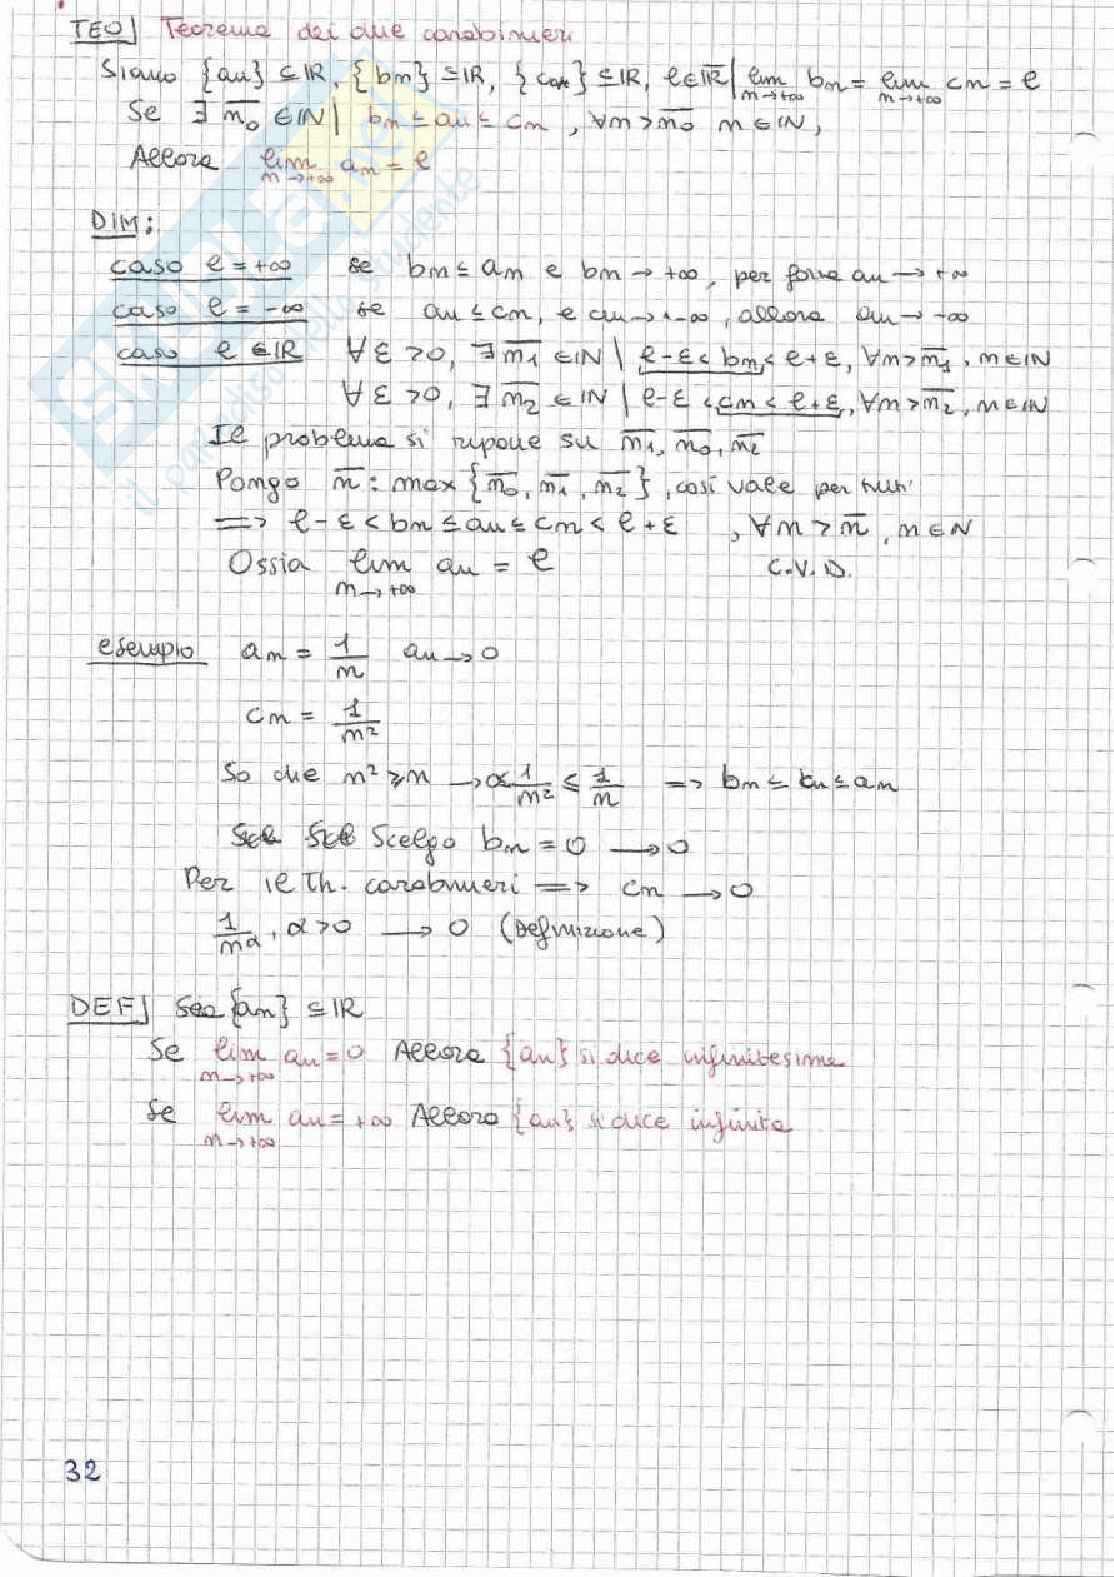 TEO] Teorema dei due carabinieri
Siano {an} ⊆ ℝ, {bn} ⊆ ℝ, {cn} ⊆ ℝ, ℓ ∈ ℝ̅ | lim n→+∞ bn = lim n→+∞ cn = ℓ
Se ∃ n̅₀ ∈ ℕ | bn ≤ an ≤ cn, ∀n > n̅₀ n ∈ ℕ,
Allora lim n→+∞ an = ℓ
DIM:
caso ℓ = +∞ se bn ≤ an e bn → +∞, per forza an → +∞
caso ℓ = -∞ se an ≤ cn, e cn → -∞, allora an → -∞
caso ℓ ∈ ℝ ∀ε > 0, ∃ n̅₁ ∈ ℕ | ℓ-ε < bn < ℓ+ε, ∀n > n̅₁, n ∈ ℕ
∀ε > 0, ∃ n̅₂ ∈ ℕ | ℓ-ε < cn < ℓ+ε, ∀n > n̅₂, n ∈ ℕ
Il problema si ripone su n̅₁, n̅₀, n̅₂
Pongo n̅ : max {n̅₀, n̅₁, n̅₂}, così vale per tutti
=> ℓ-ε < bn ≤ an ≤ cn < ℓ+ε, ∀n > n̅, n ∈ ℕ
Ossia lim n→+∞ an = ℓ C.V.D.
esempio an = 1/n an → 0
cn = 1/n²
So che n² ≥ n → 1/n² ≤ 1/n => bn ≤ cn ≤ an
Scelgo bn = 0 → 0
Per il Th. carabinieri => cn → 0
1/n^α, α > 0 → 0 (Definizione)
DEF] Sea {an} ⊆ ℝ
Se lim n→+∞ an = 0 Allora {an} si dice infinitesima
Se lim n→+∞ an = +∞ Allora {an} si dice infinita
32